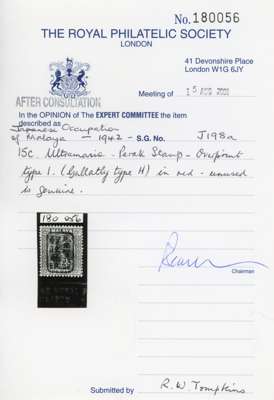 No. 180056
THE ROYAL PHILATELIC SOCIETY
LONDON
41 Devonshire Place
London W1G 6JY
Meeting of 15 AUG 2001
AFTER CONSULTATION
In the OPINION OF The EXPERT COMMITTEE the item
described as
Japanese Occupation
of Malaya — 1942 - S.G. No. J198a
15c. Ultramarine. Perak Stamp - Overprint
type 1. (Gallatly type H) in red - unused
is genuine.
180 056
MALAYA
Chairman
Submitted by R. W. Tompkins